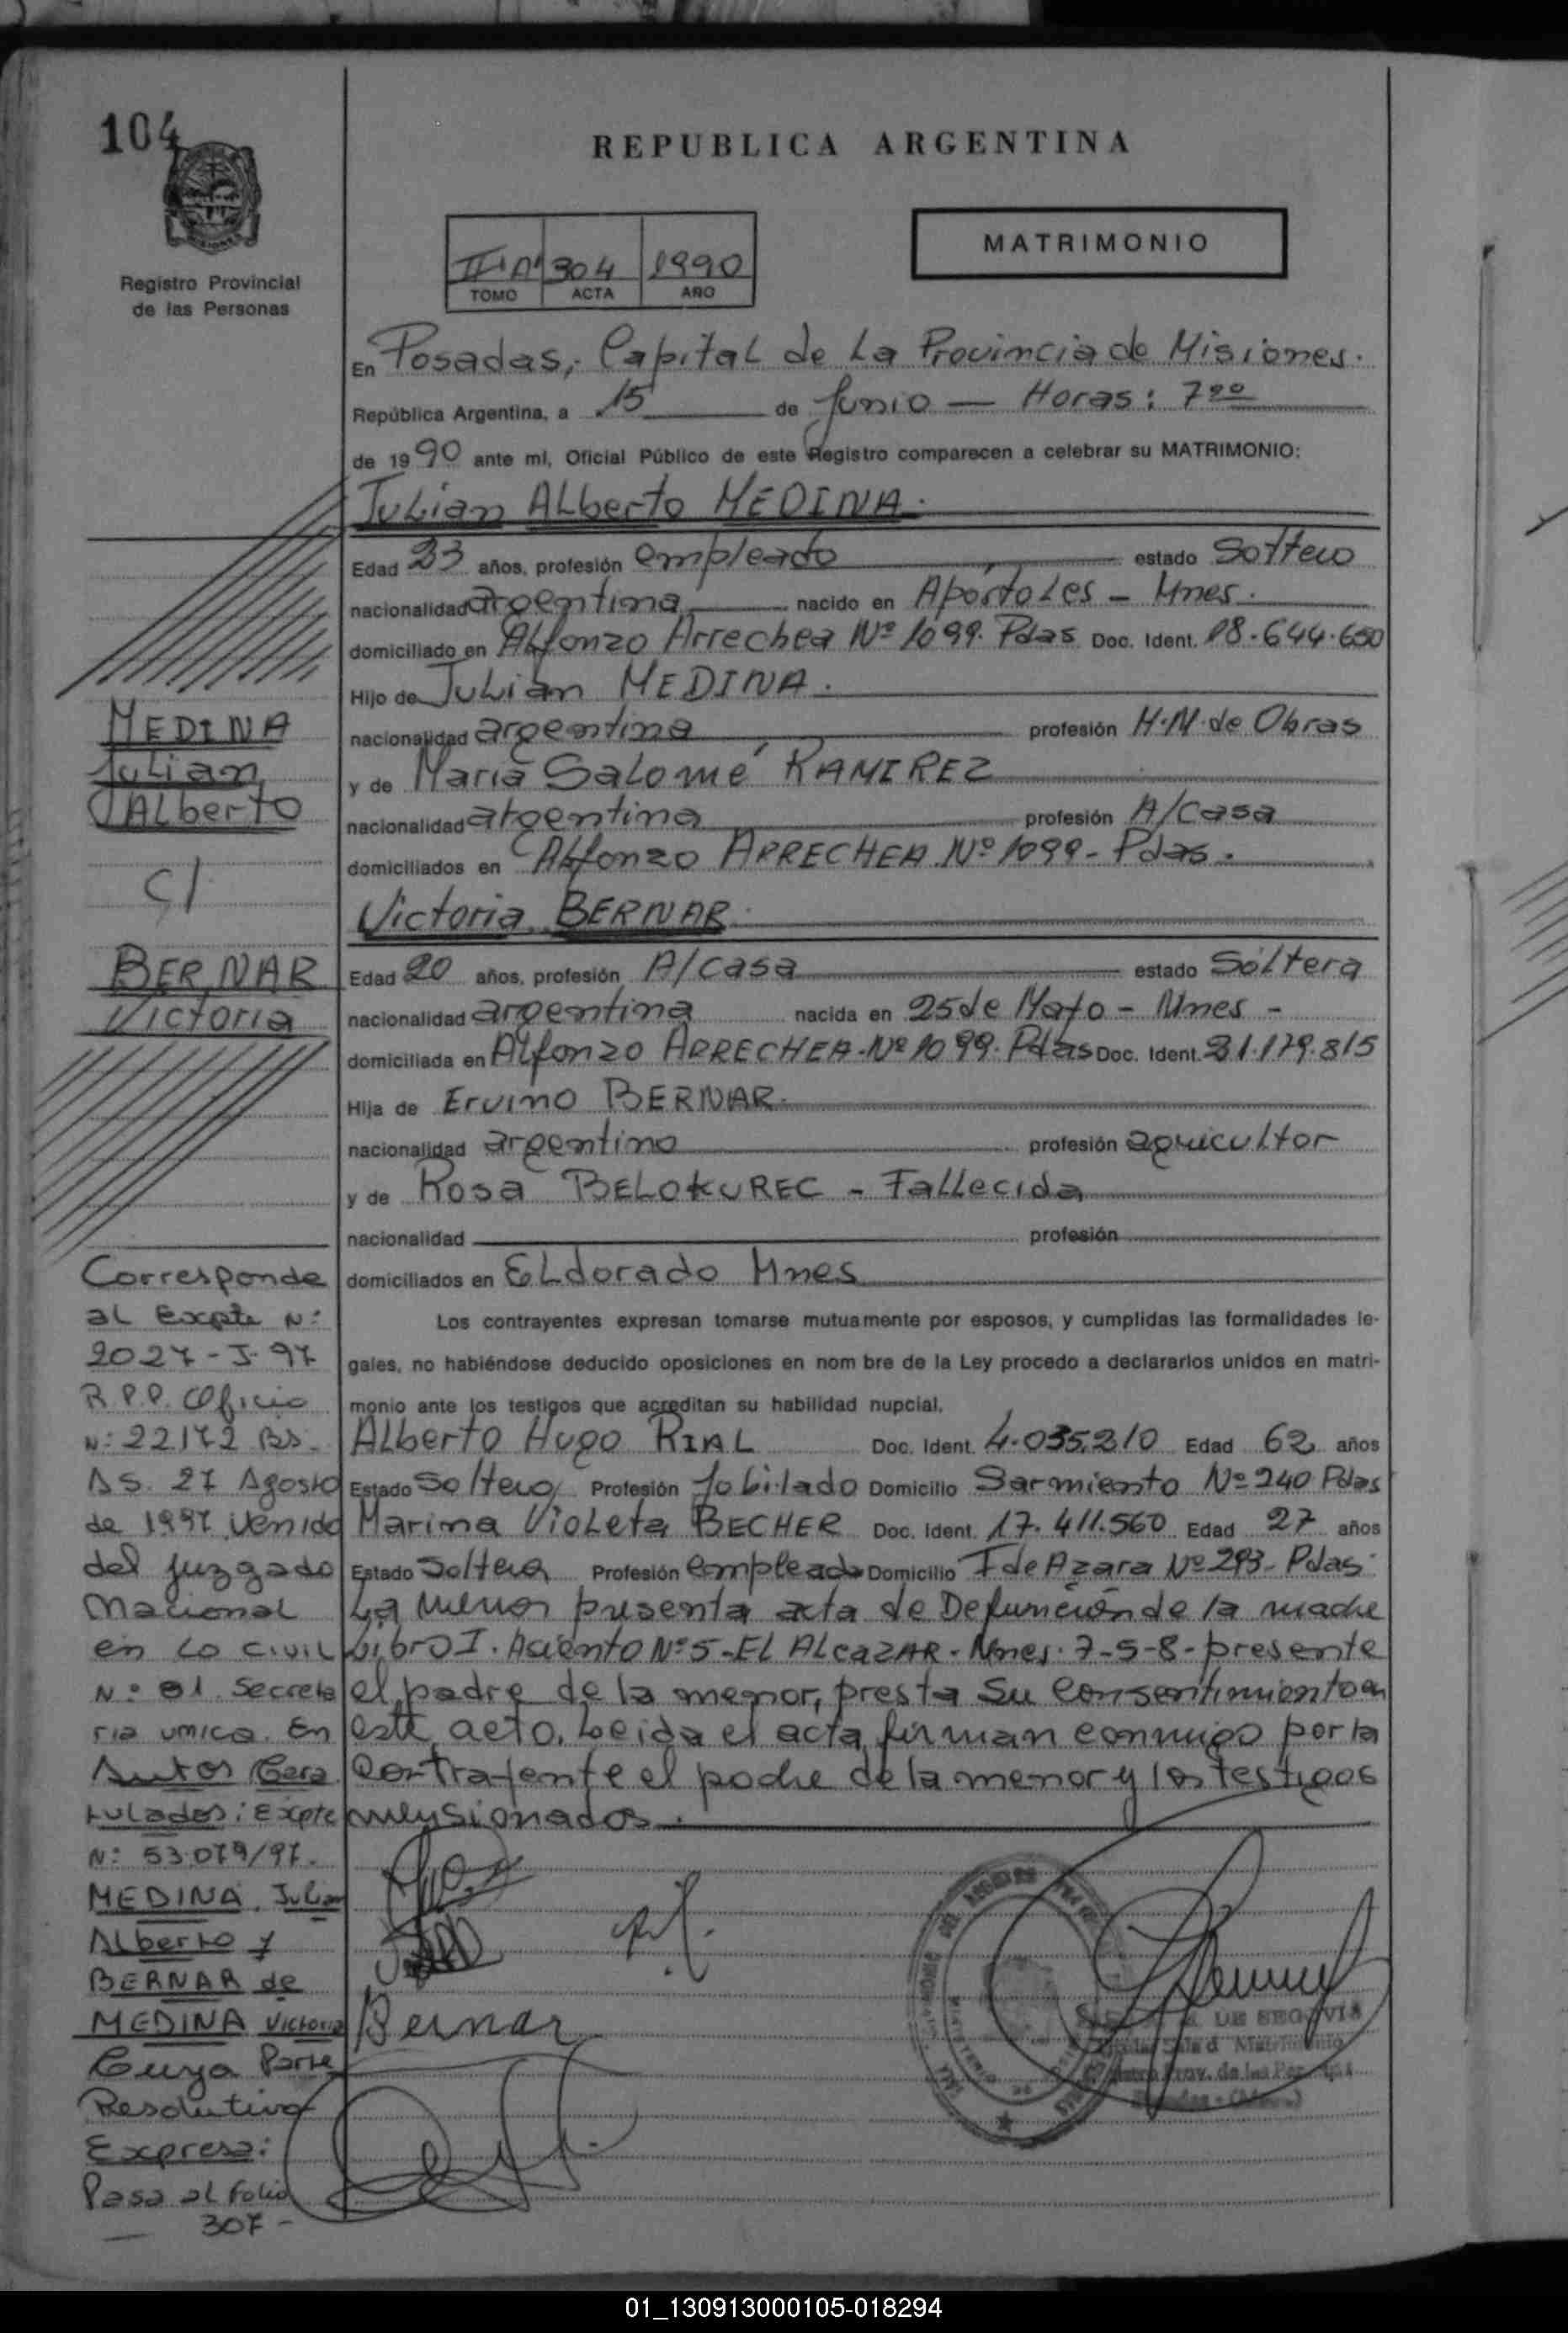 104
REPUBLICA ARGENTINA
MATRIMONIO
304 1990
TOMO ACTA AÑO
Registro Provincial
de las Personas
En Posadas, Capital de La Provincia de Misiones.
República Argentina, a 15 de Junio — Horas: 700
de 1990 ante mí, Oficial Público de este Registro comparecen a celebrar su MATRIMONIO:
Julian Alberto MEDINA.
Edad 23 años, profesión empleado estado Soltero
nacionalidad argentina nacido en Apóstoles - Mnes.
domiciliado en Alfonzo Arrechea Nº 1099. Pdas Doc. Ident. 18.644.650
Hijo de Julián MEDINA.
nacionalidad argentina profesión H.N. de Obras
y de María Salomé RAMIREZ
nacionalidad argentina profesión A/casa
domiciliados en Alfonzo ARRECHEA Nº 1099 - Pdas.
Victoria BERNAR.
Edad 20 años, profesión A/casa estado Soltera
nacionalidad argentina nacida en 25 de Mayo - Mnes -
domiciliada en Alfonzo ARRECHEA Nº 1099. Pdas Doc. Ident. 21.179.815
Hija de Ervino BERNAR.
nacionalidad argentino profesión agricultor
y de Rosa BELOKUREC - Fallecida
nacionalidad profesión
domiciliados en ELdorado Mnes
Los contrayentes expresan tomarse mutuamente por esposos, y cumplidas las formalidades le-
gales, no habiéndose deducido oposiciones en nom bre de la Ley procedo a declararlos unidos en matri-
monio ante los testigos que acreditan su habilidad nupcial.
Alberto Hugo RIAL Doc. Ident. 4.035.210 Edad 62 años
Estado Soltero Profesión Jubilado Domicilio Sarmiento Nº 240 Pdas
Marina Violeta BECHER Doc. Ident. 17.411.560 Edad 27 años
Estado Soltera Profesión empleada Domicilio F de Azara Nº 293 - Pdas.
La menor presenta acta de Defunción de la madre
Libro I. Asiento Nº 5 - EL ALcaZAR - Mnes. 7-5-8 - presente
el padre de la menor, presta su consentimiento en
este acto. Leida el acta, firman conmigo por la
contrayente el padre de la menor y los testigos
mensionados.
Bernar
DE SEGOVIA
MEDINA
Julian
Alberto
c/
BERNAR
Victoria
Corresponde
al Expte N:
2027-J-97
R.P.P. Oficio
N: 22.172 Bs.
As. 27 Agosto
de 1997 venido
del juzgado
Nacional
en Lo civil
Nº 81 Secreta
ria unica. En
Autos Cara
tulados: Expte
N: 53.079/97.
MEDINA, Julian
Alberto y
BERNAR de
MEDINA Victoria
Cuya Parte
Resolutiva
Expresa:
Pasa al folio
307-
01_130913000105-018294